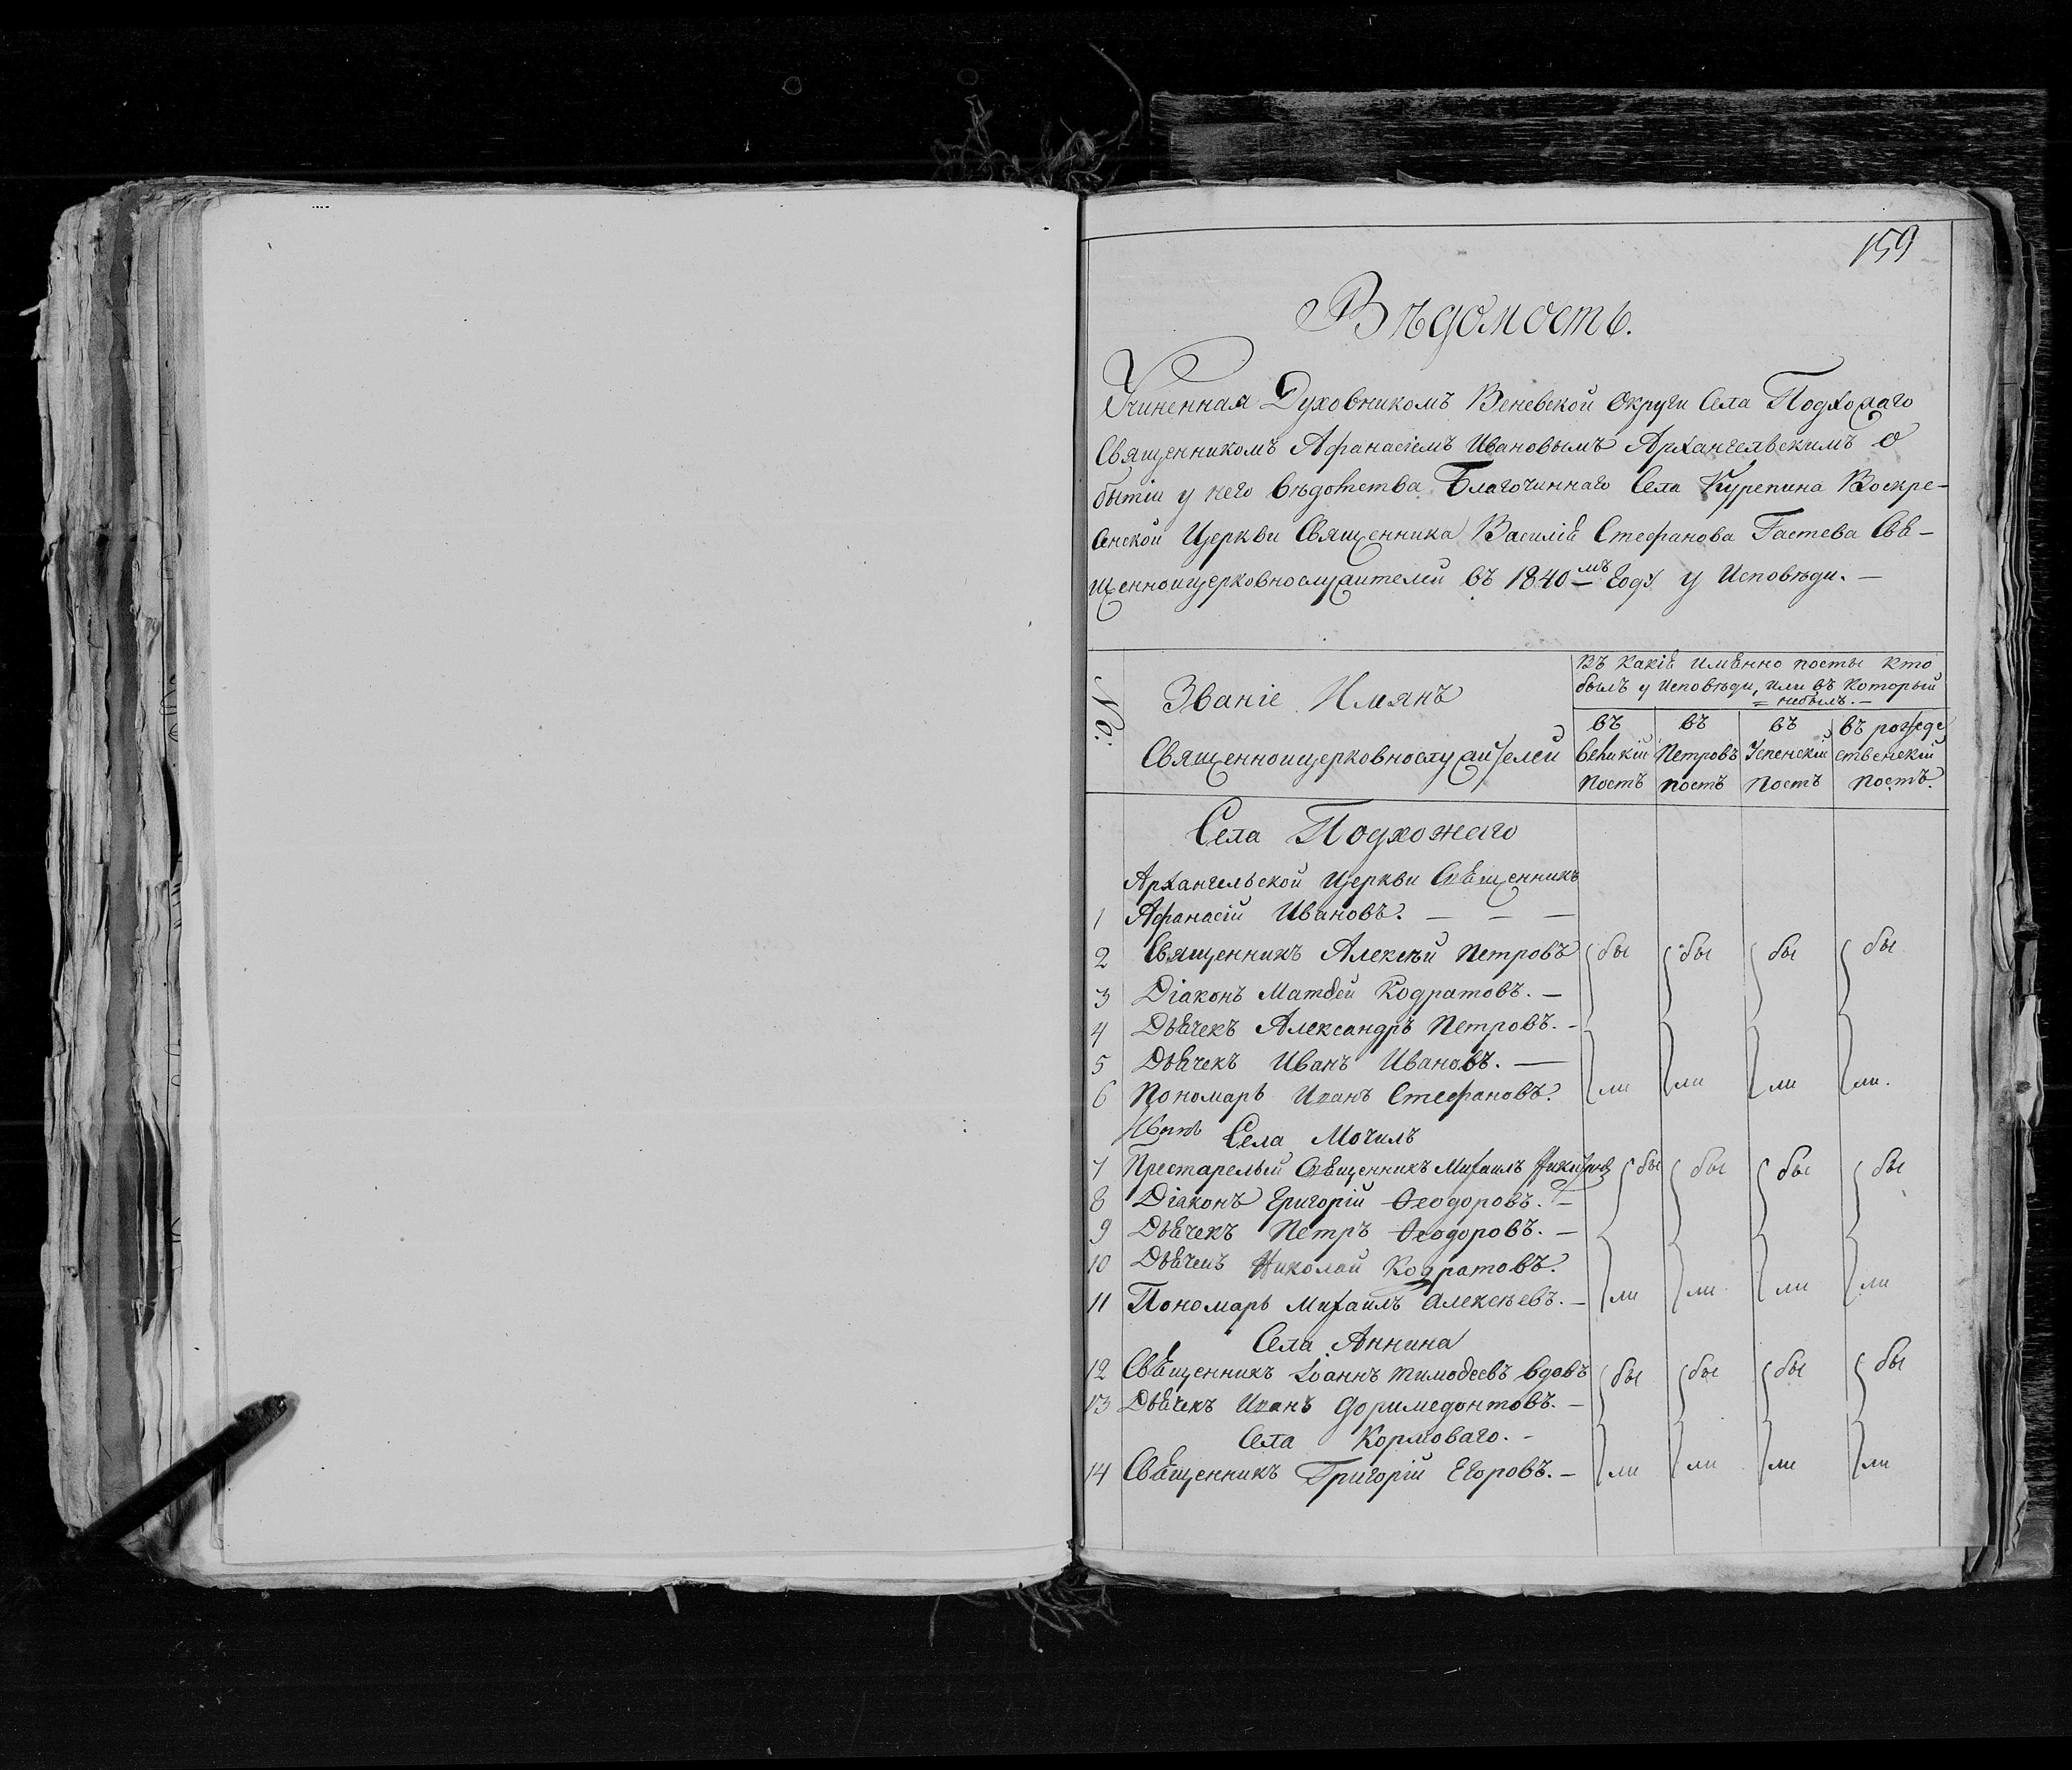 159
Вѣдомость.
Учиненная Духовникомъ Веневской Округи Села Подхожаго
Священникомъ Афанасіемъ Ивановымъ Архангельскимъ о
бытіи у него вѣдомства Благочиннаго Села Курепина Воскре-
сенской Церкви Священника Василія Стефанова Гастева Свя-
щенноицерковнослужителей въ 1840-мъ Году у Исповѣди. —
No:
Званіе Имянъ
Священноицерковнослужителей
Въ какіе имѣнно посты кто
былъ у Исповѣди, или въ который
= небылъ. —
въ Великій Постъ
въ Петровъ постъ
въ Успенскій Постъ
въ рожде ственскій Постъ.
Села Подхожаго
Архангельской Церкви Священникъ
1 Афанасій Ивановъ. — — —
2 Священникъ Алексѣй Петровъ бы бы бы бы
3 Діаконъ Матѳей Кодратовъ. —
4 Дьячекъ Александръ Петровъ. -
5 Дьячекъ Иванъ Ивановъ. —
6 Пономарь Иванъ Стефановъ. ли ли ли ли.
Села Мочилъ
7 Престарелый Священникъ Михаилъ бы бы бы бы
8 Діаконъ Григорій Ѳеодоровъ. —
9 Дьячекъ Петръ Ѳеодоровъ. —
10 Дьячекъ Николай Кодратовъ.
11 Пономарь Михаилъ Алексѣевъ. — ли ли ли ли
Села Аннина
12 Священникъ Іоаннъ Тимоѳеевъ вдовъ бы бы бы бы
13 Дьячекъ Иванъ Доримедонтовъ. —
Села Кормоваго. -
14 Священникъ Григорій Егоровъ. — ли ли ли ли